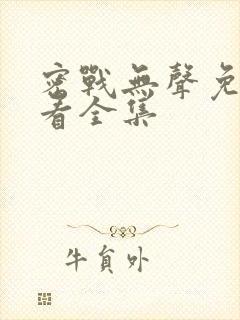 密戰無聲免
看全集
牛貟外